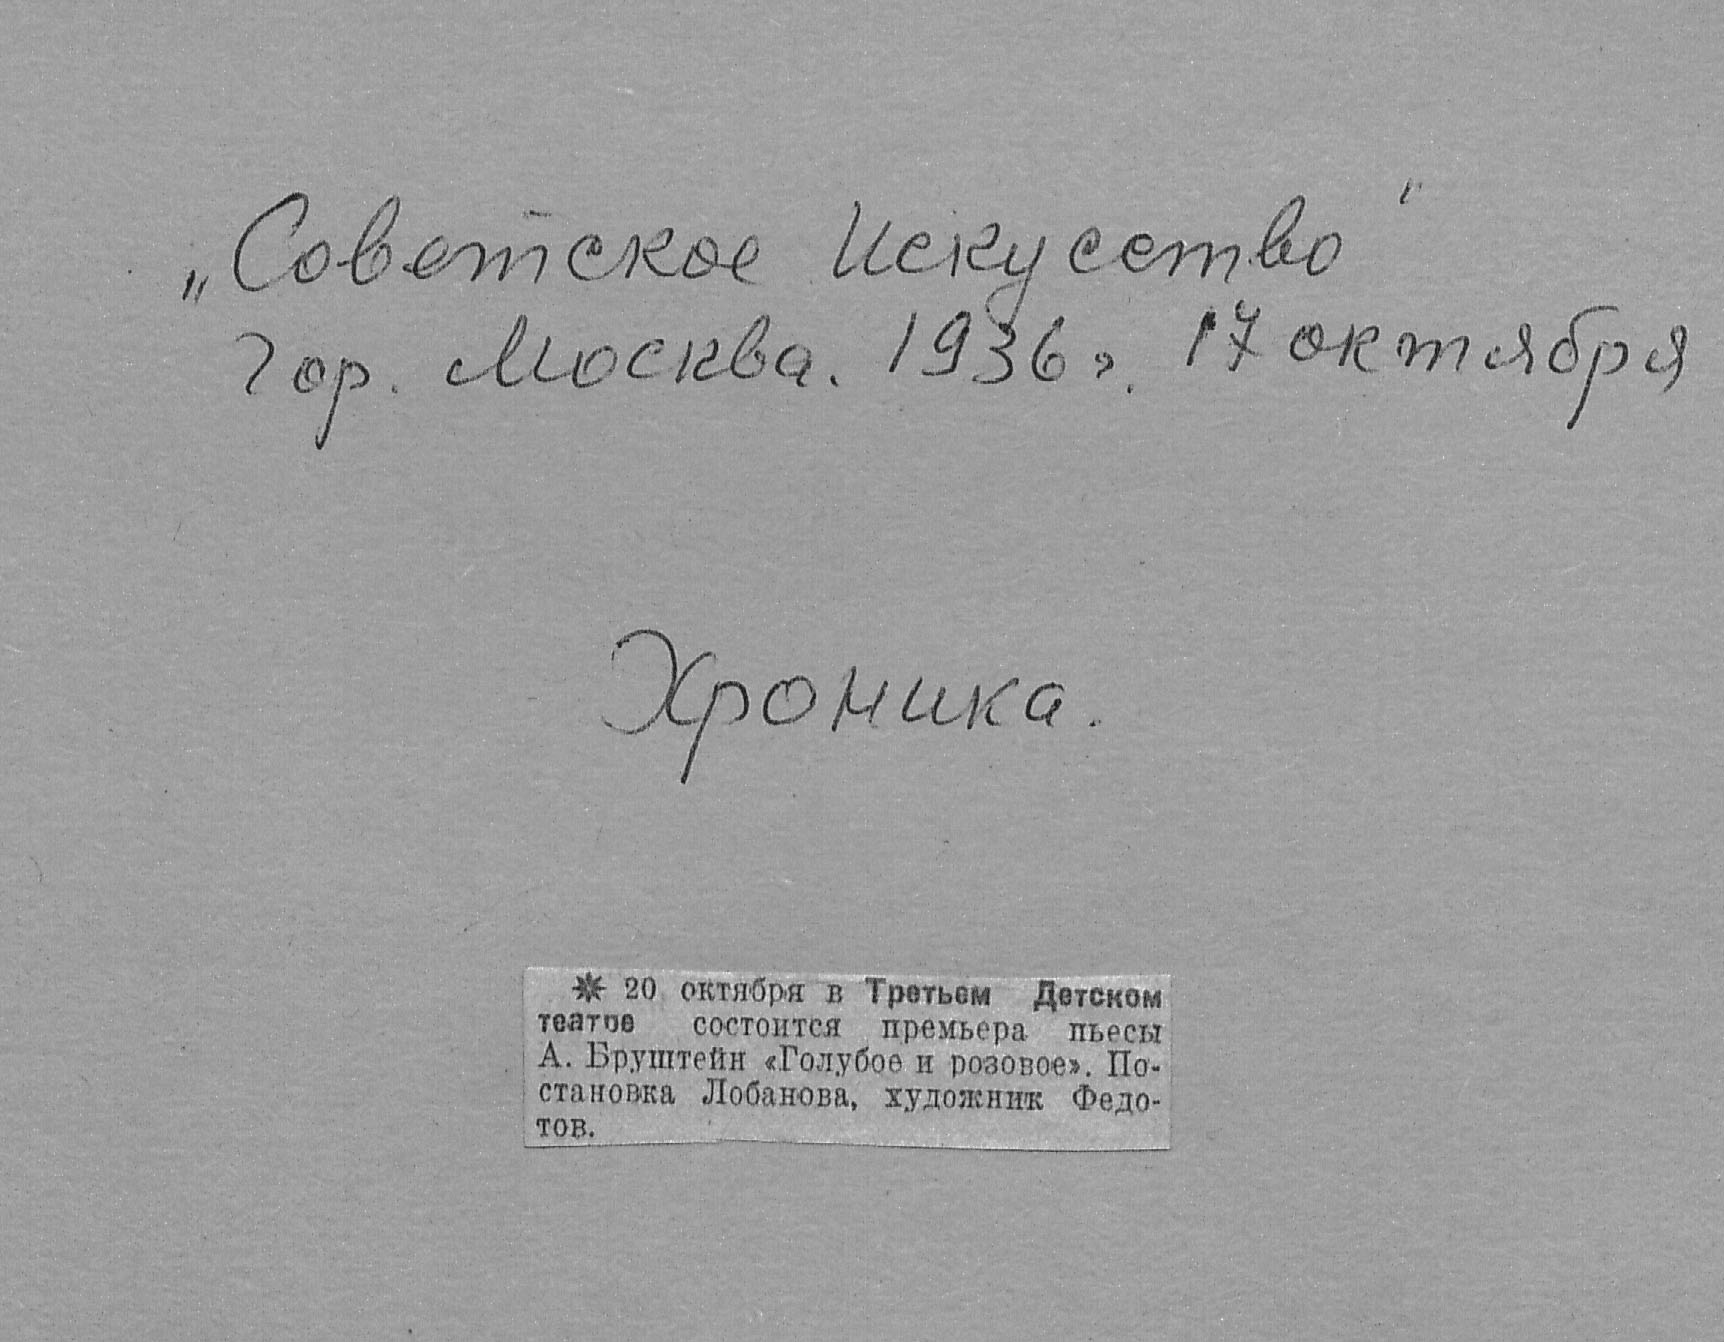 „Советское Искусство"
гор. Москва. 1936 г. 17 октября
Хроника.
✷ 20 октября в Третьем Детском
театре состоится премьера пьесы
А. Бруштейн «Голубое и розовое». По-
становка Лобанова, художник Федо-
тов.